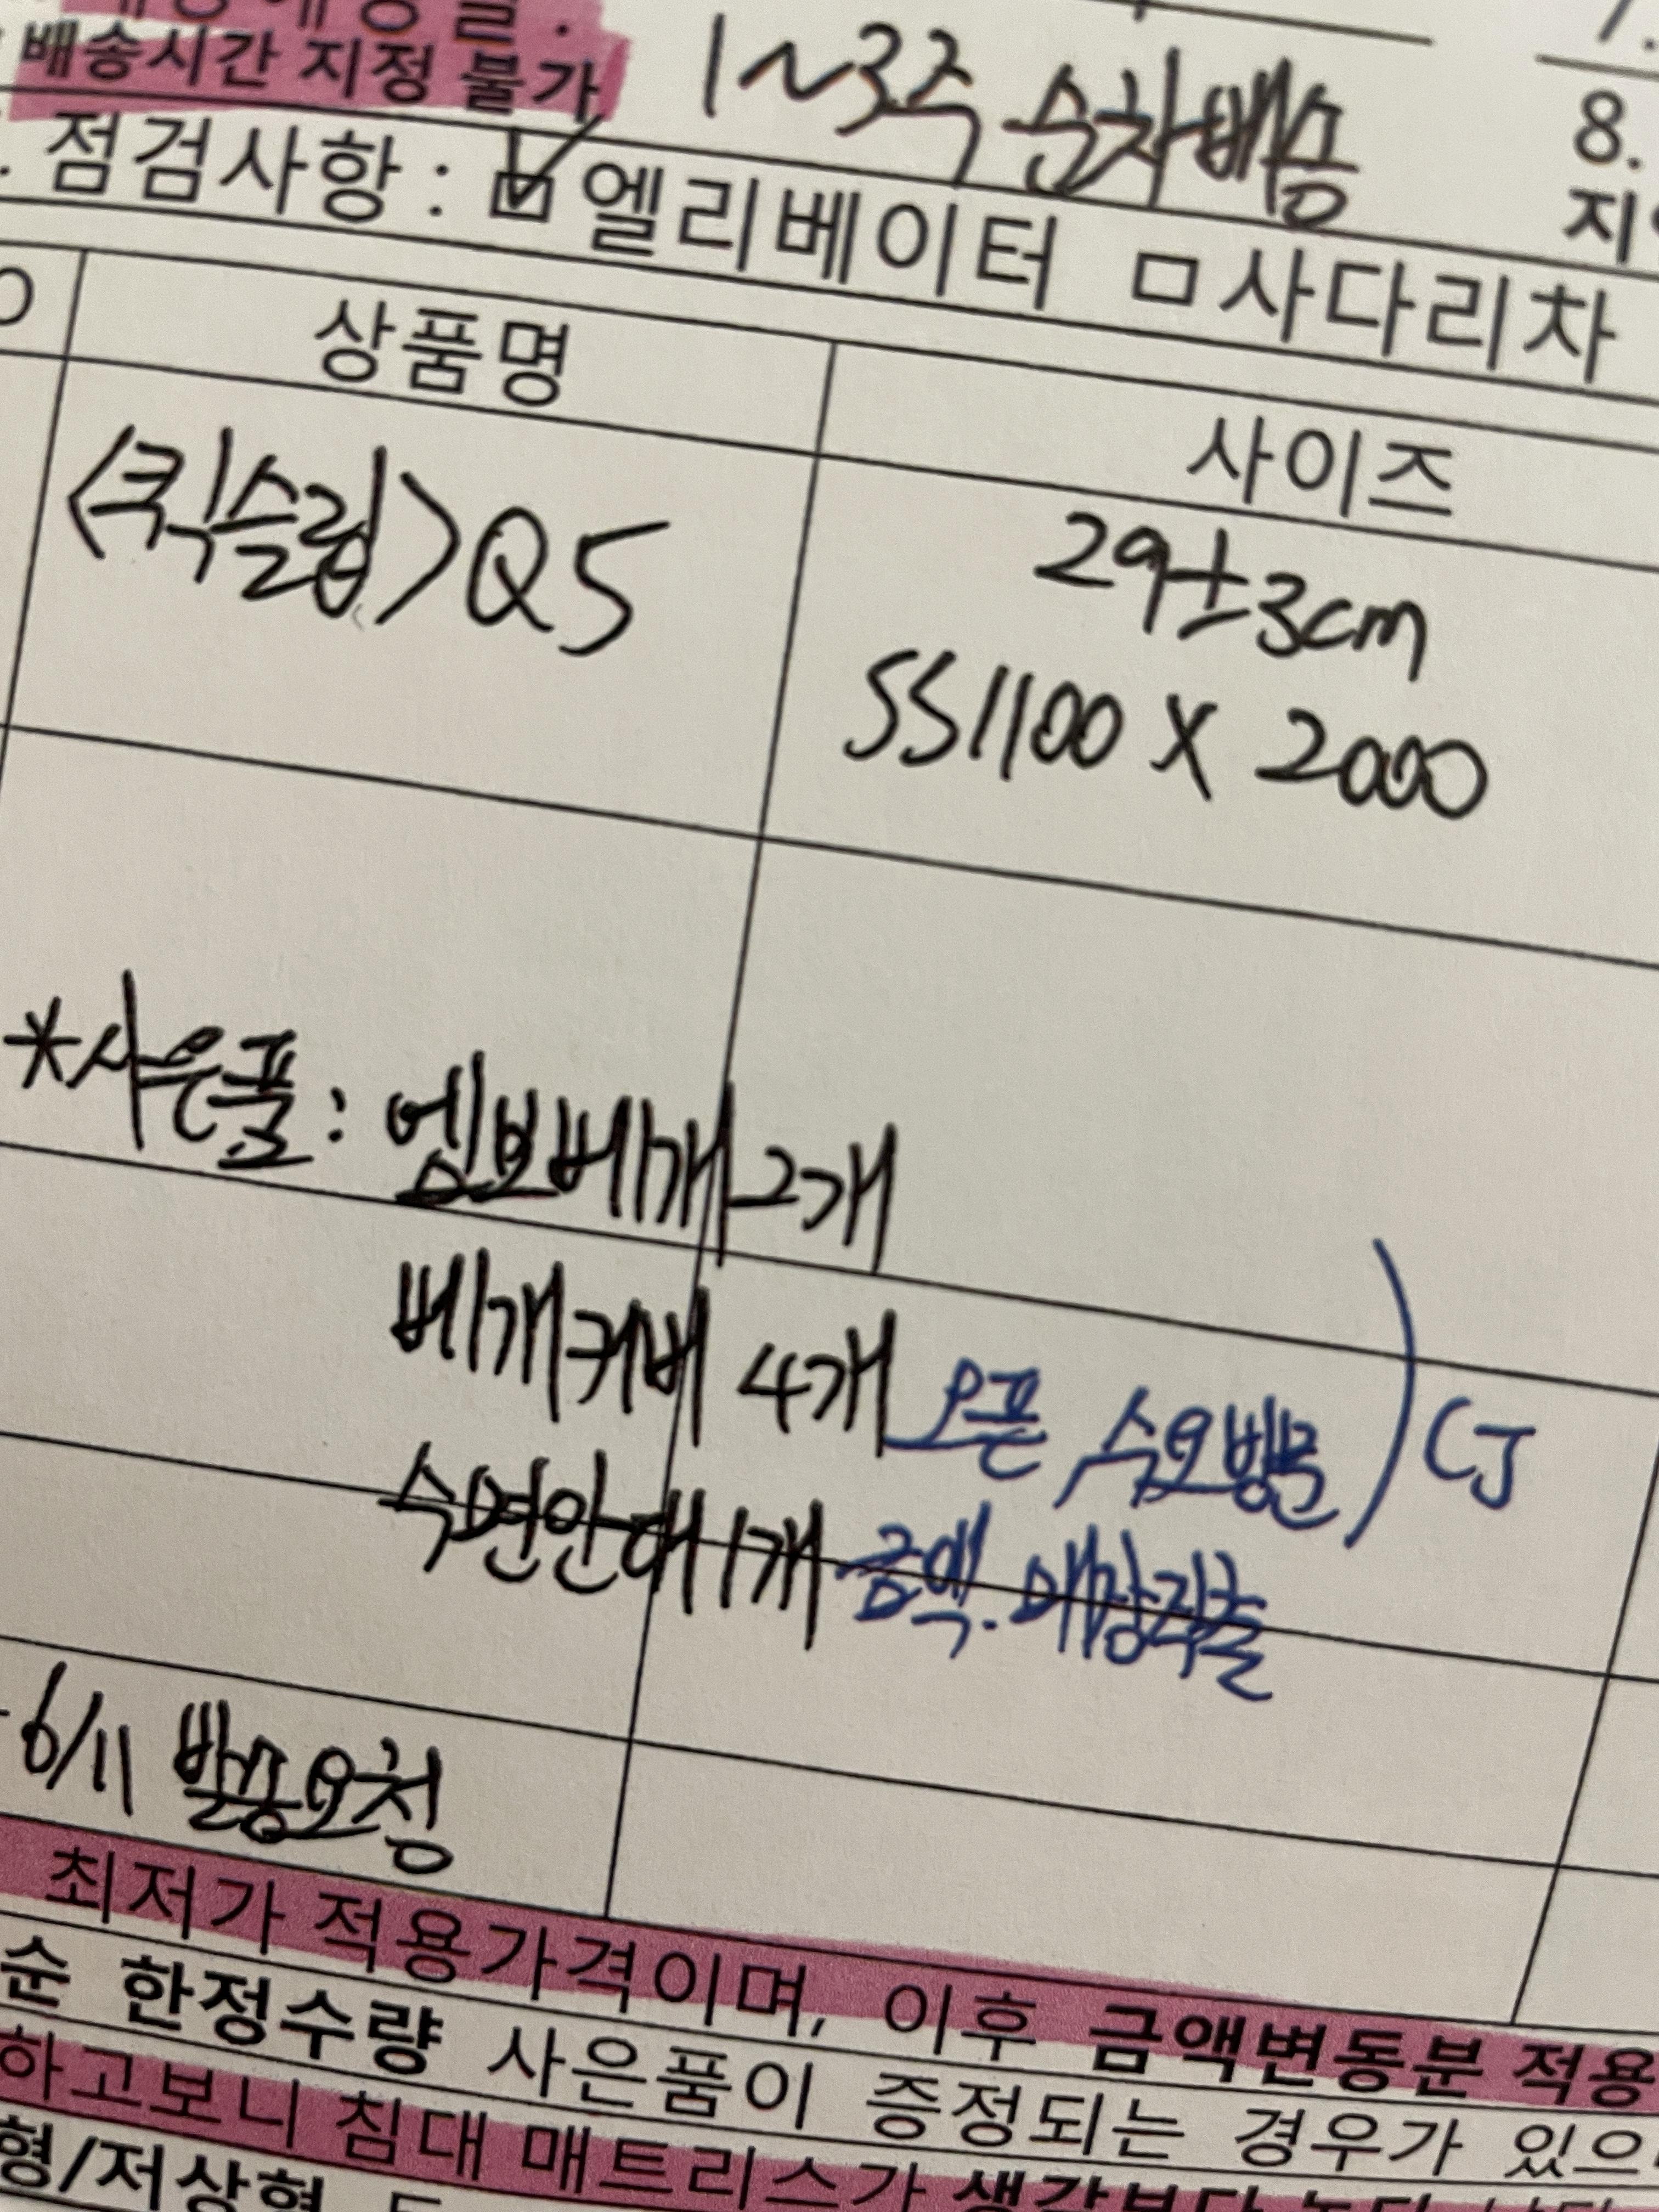 배송시간 지정 불가 1~3주 순차배송
점검사항 : ☑엘리베이터 ㅁ사다리차
8.
상품명 사이즈
<퀵슬립>Q5 29±3cm
SS 1100 X 2000
*사은품 : 엠보베개 2개
베개커버 4개 오픈 수요방문 ) CJ
수면안대 1개 금액.매장진출
6/11 발송요청
최저가 적용가격이며, 이후 금액변동분 적용
순 한정수량 사은품이 증정되는 경우가 있으
하고보니 침대 매트리스가 생각보다
형/저상형